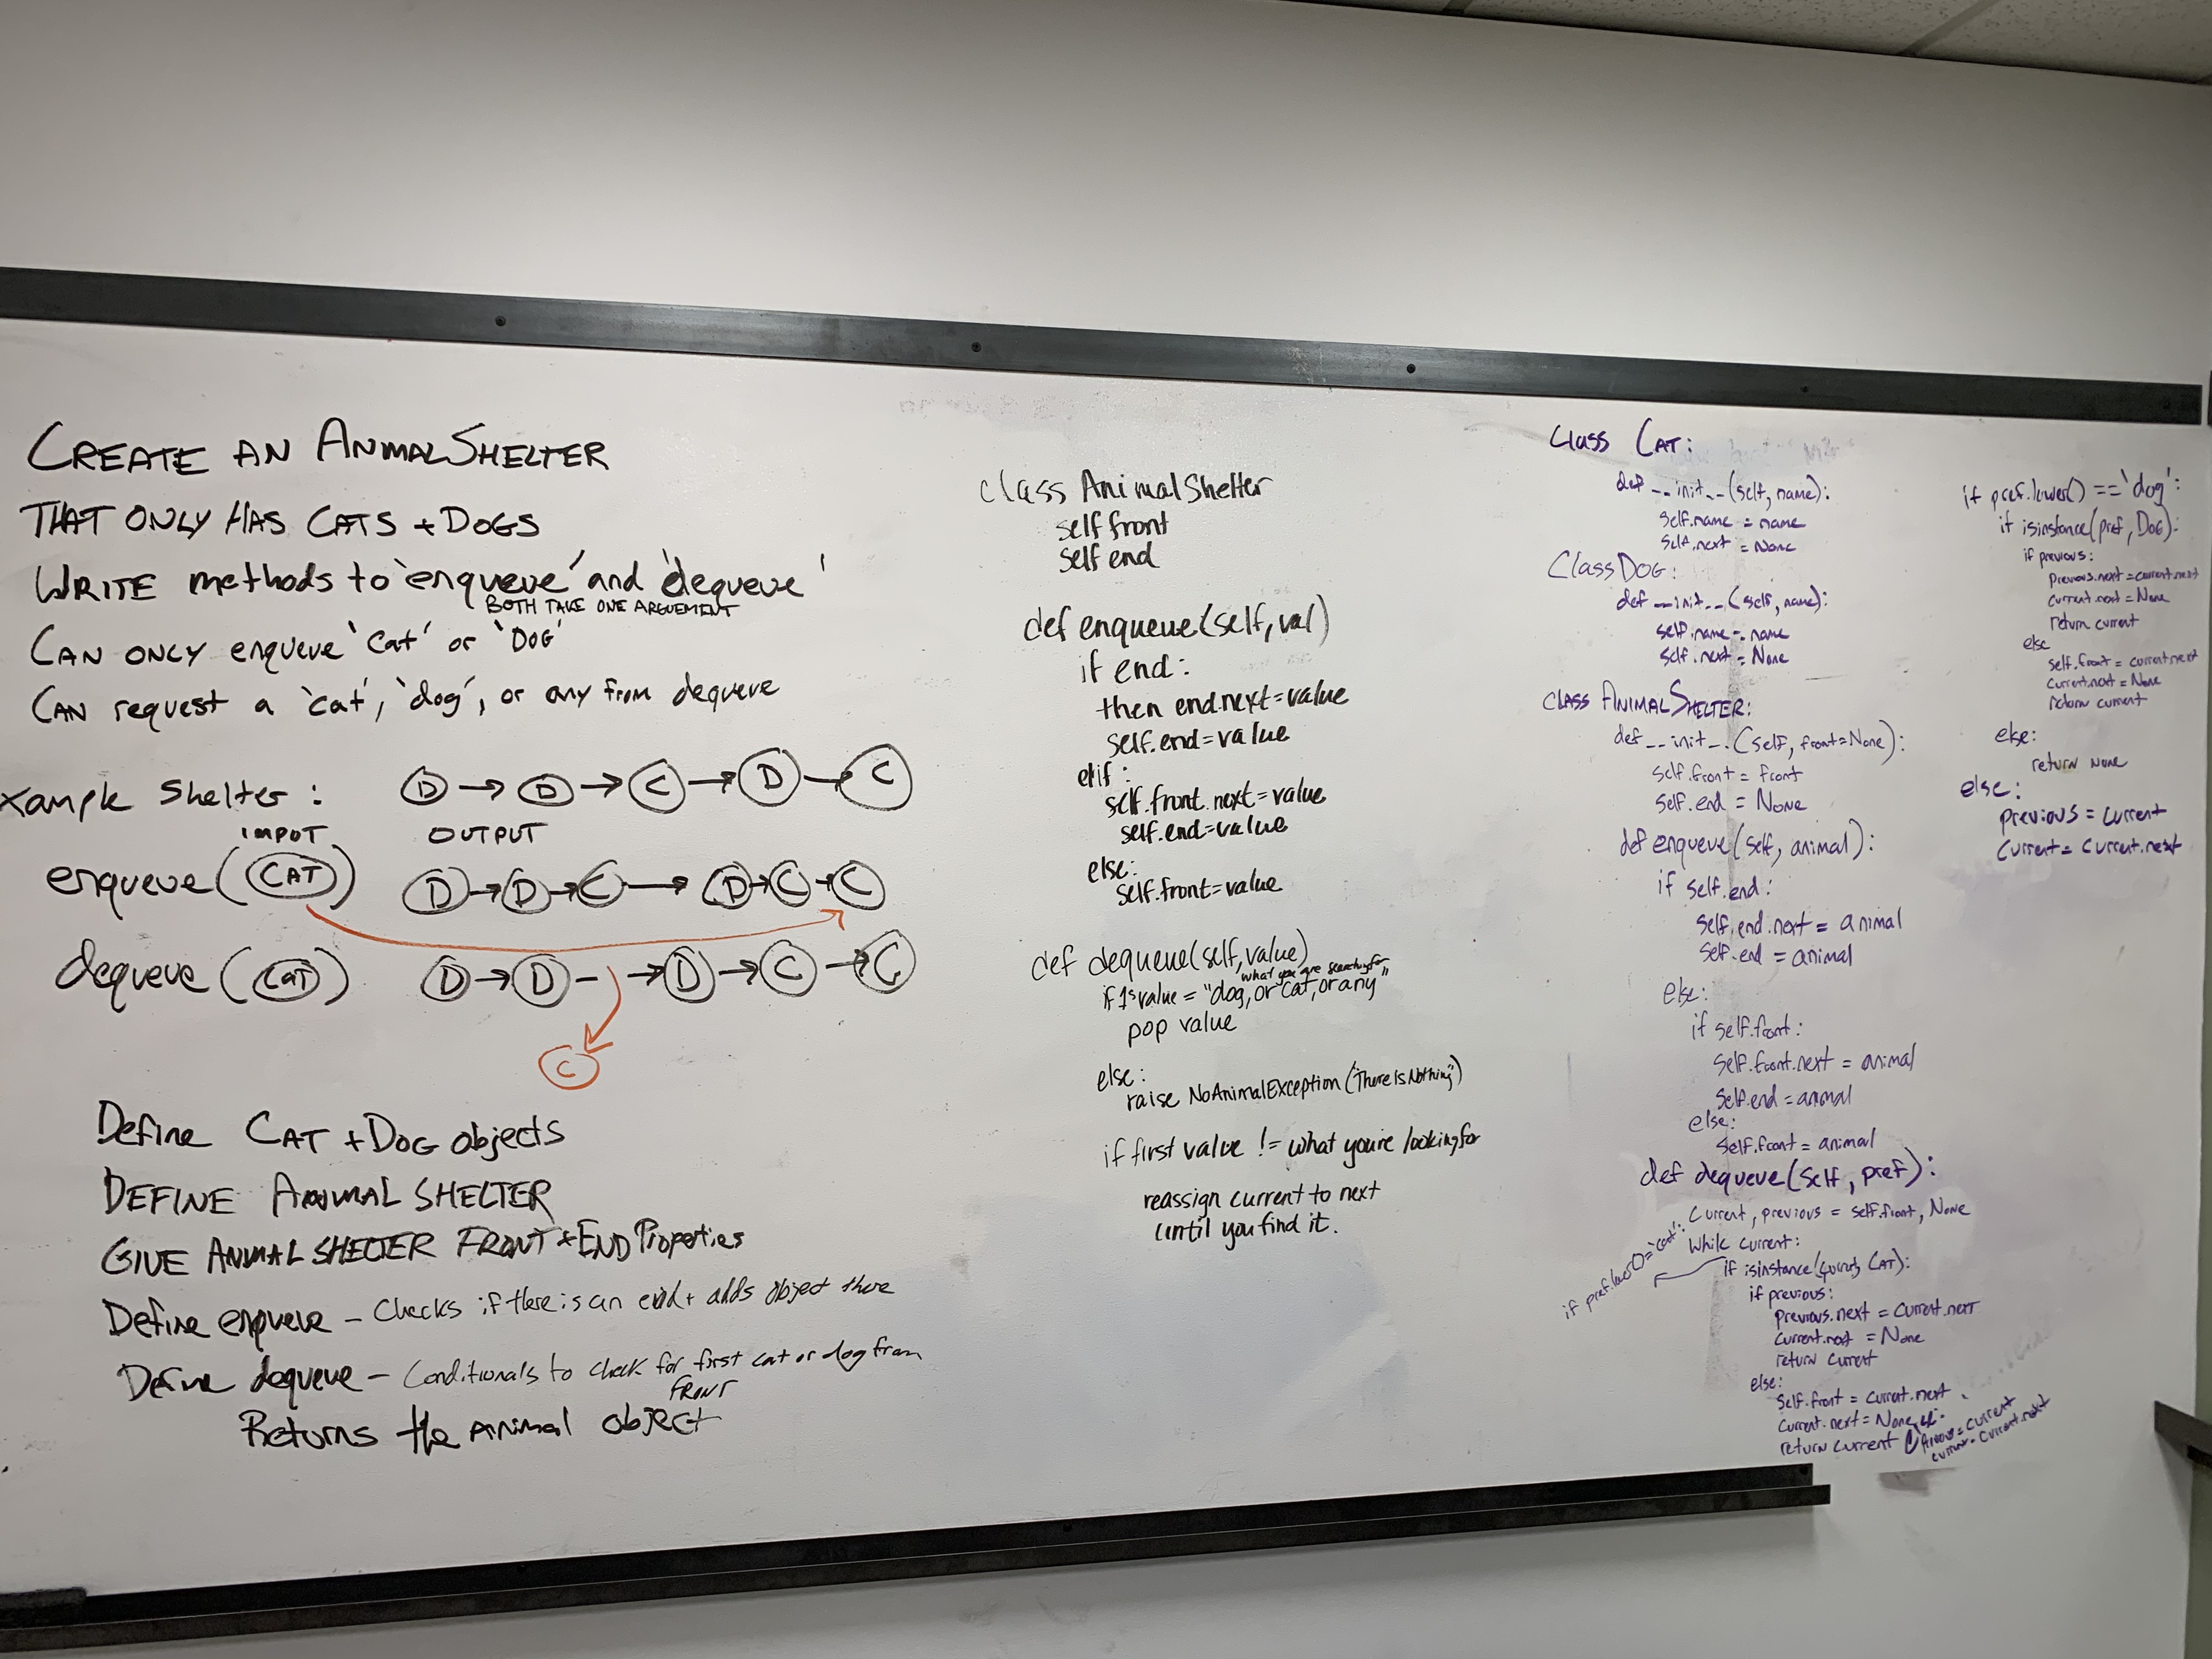 CREATE AN ANIMALSHELTER
THAT ONLY HAS CATS + DOGS
WRITE methods to 'enqueue' and 'dequeue'
BOTH TAKE ONE ARGUEMENT
CAN ONLY enqueue 'cat' or 'DOG'
CAN request a 'cat', 'dog', or any from dequeue
xample Shelter: D → D → C → D → C
INPUT OUTPUT
enqueue(CAT) D → D → C → D → C → C
dequeue(CAT) D → D - → D → C → C
C
Define CAT + DOG objects
DEFINE ANIMAL SHELTER
GIVE ANIMAL SHELTER FRONT + END Properties
Define enqueue - Checks if there is an end + adds object there
Define dequeue - Conditionals to check for first cat or dog from
FRONT
Returns the animal object
class AnimalShelter
self front
self end
def enqueue(self, val)
if end:
then end.next = value
self.end = value
elif:
self.front.next = value
self.end = value
else:
self.front = value
def dequeue(self, value)
"what you are searching for"
if 1st value = "dog, or cat, or any"
pop value
else:
raise NoAnimalException("There Is Nothing")
if first value != what you're looking for
reassign current to next
until you find it.
Class CAT:
def __init__(self, name):
self.name = name
self.next = None
Class DOG:
def __init__(self, name):
self.name = name
self.next = None
CLASS ANIMALSHELTER:
def __init__(self, front=None):
self.front = front
self.end = None
def enqueue(self, animal):
if self.end:
self.end.next = animal
self.end = animal
else:
if self.front:
self.front.next = animal
self.end = animal
else:
self.front = animal
def dequeue(self, pref):
current, previous = self.front, None
while current:
if pref.lower() = 'cat':
if isinstance(current, CAT):
if previous:
previous.next = current.next
current.next = None
return current
else:
self.front = current.next
current.next = None
return current
previous = current
current = current.next
if pref.lower() == 'dog':
if isinstance(pref, DOG):
if previous:
previous.next = current.next
current.next = None
return current
else
self.front = current.next
current.next = None
return current
else:
return None
else:
previous = current
current = current.next